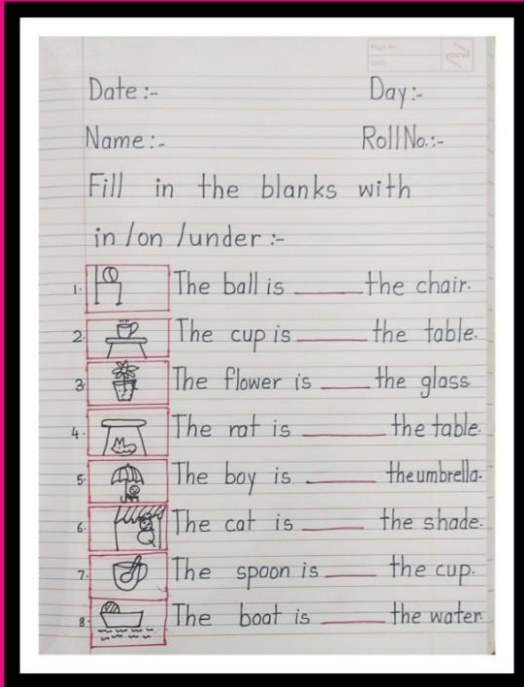 Date:- Day:-
Name:- Roll No.:-
Fill in the blanks with
in /on /under :-
1. The ball is ______ the chair.
2. The cup is ______ the table.
3. The flower is ______ the glass
4. The rat is ______ the table.
5. The boy is ______ the umbrella.
6. The cat is ______ the shade.
7. The spoon is ______ the cup.
8. The boat is ______ the water.